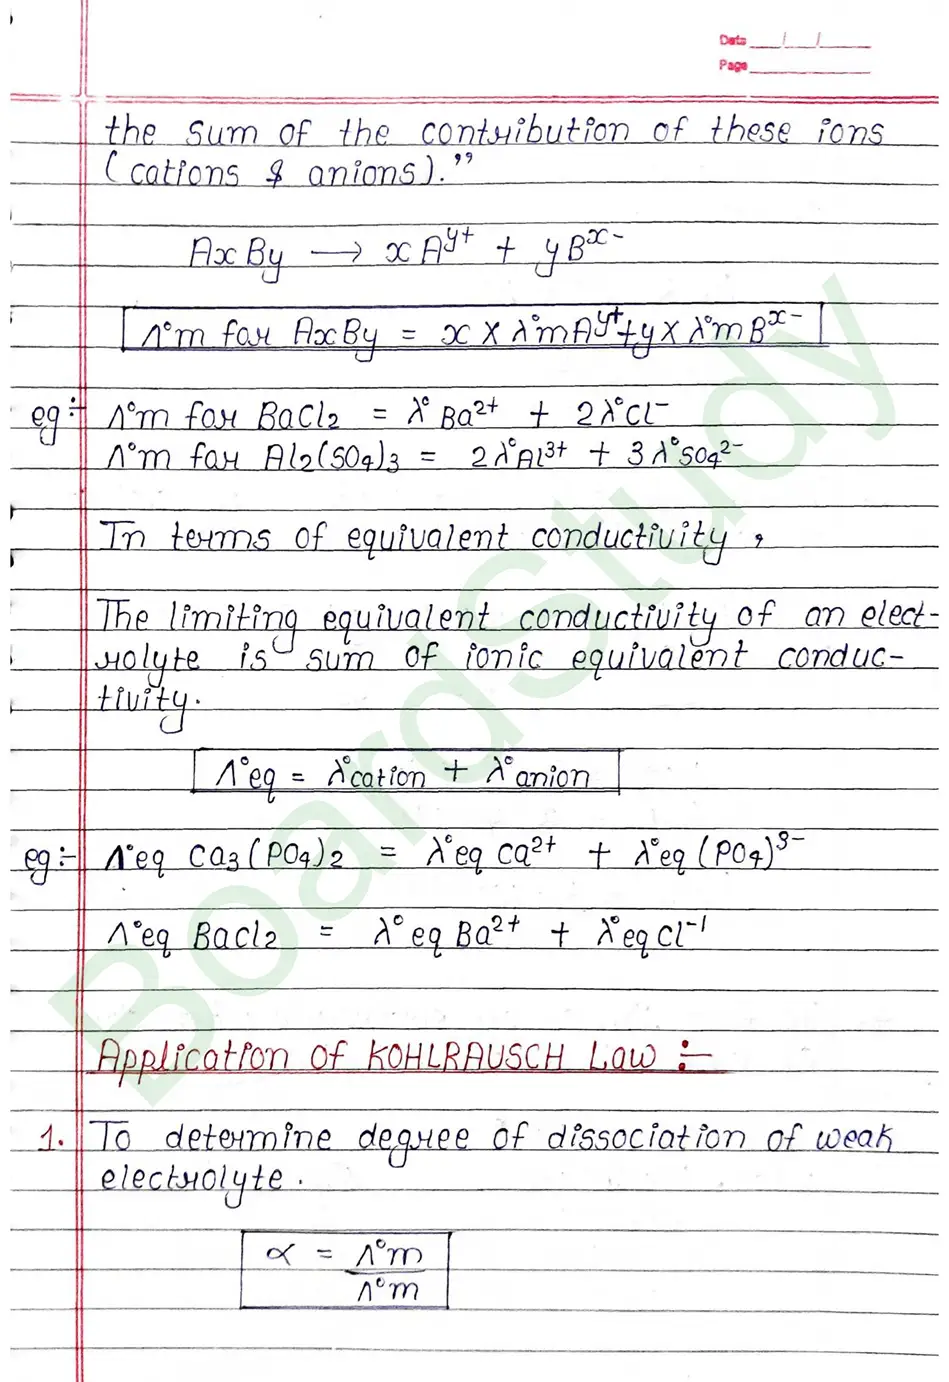 Date __/__/____
Page ________
the sum of the contribution of these ions
(cations & anions)."
AxBy ⟶ xA^y+ + yB^x-
Λ°m for AxBy = x × λ°mA^y+ + y × λ°mB^x-
eg:- Λ°m for BaCl2 = λ°Ba²⁺ + 2λ°Cl⁻
Λ°m for Al2(SO4)3 = 2λ°Al³⁺ + 3λ°SO4²⁻
In terms of equivalent conductivity,
The limiting equivalent conductivity of an elect-
rolyte is sum of ionic equivalent conduc-
tivity.
Λ°eq = λ°cation + λ°anion
eg:- Λ°eq Ca3(PO4)2 = λ°eq Ca²⁺ + λ°eq (PO4)³⁻
Λ°eq BaCl2 = λ°eq Ba²⁺ + λ°eq Cl⁻¹
Application of KOHLRAUSCH Law :-
1. To determine degree of dissociation of weak
electrolyte.
α = Λ°m
Λ°m
BoardStudy